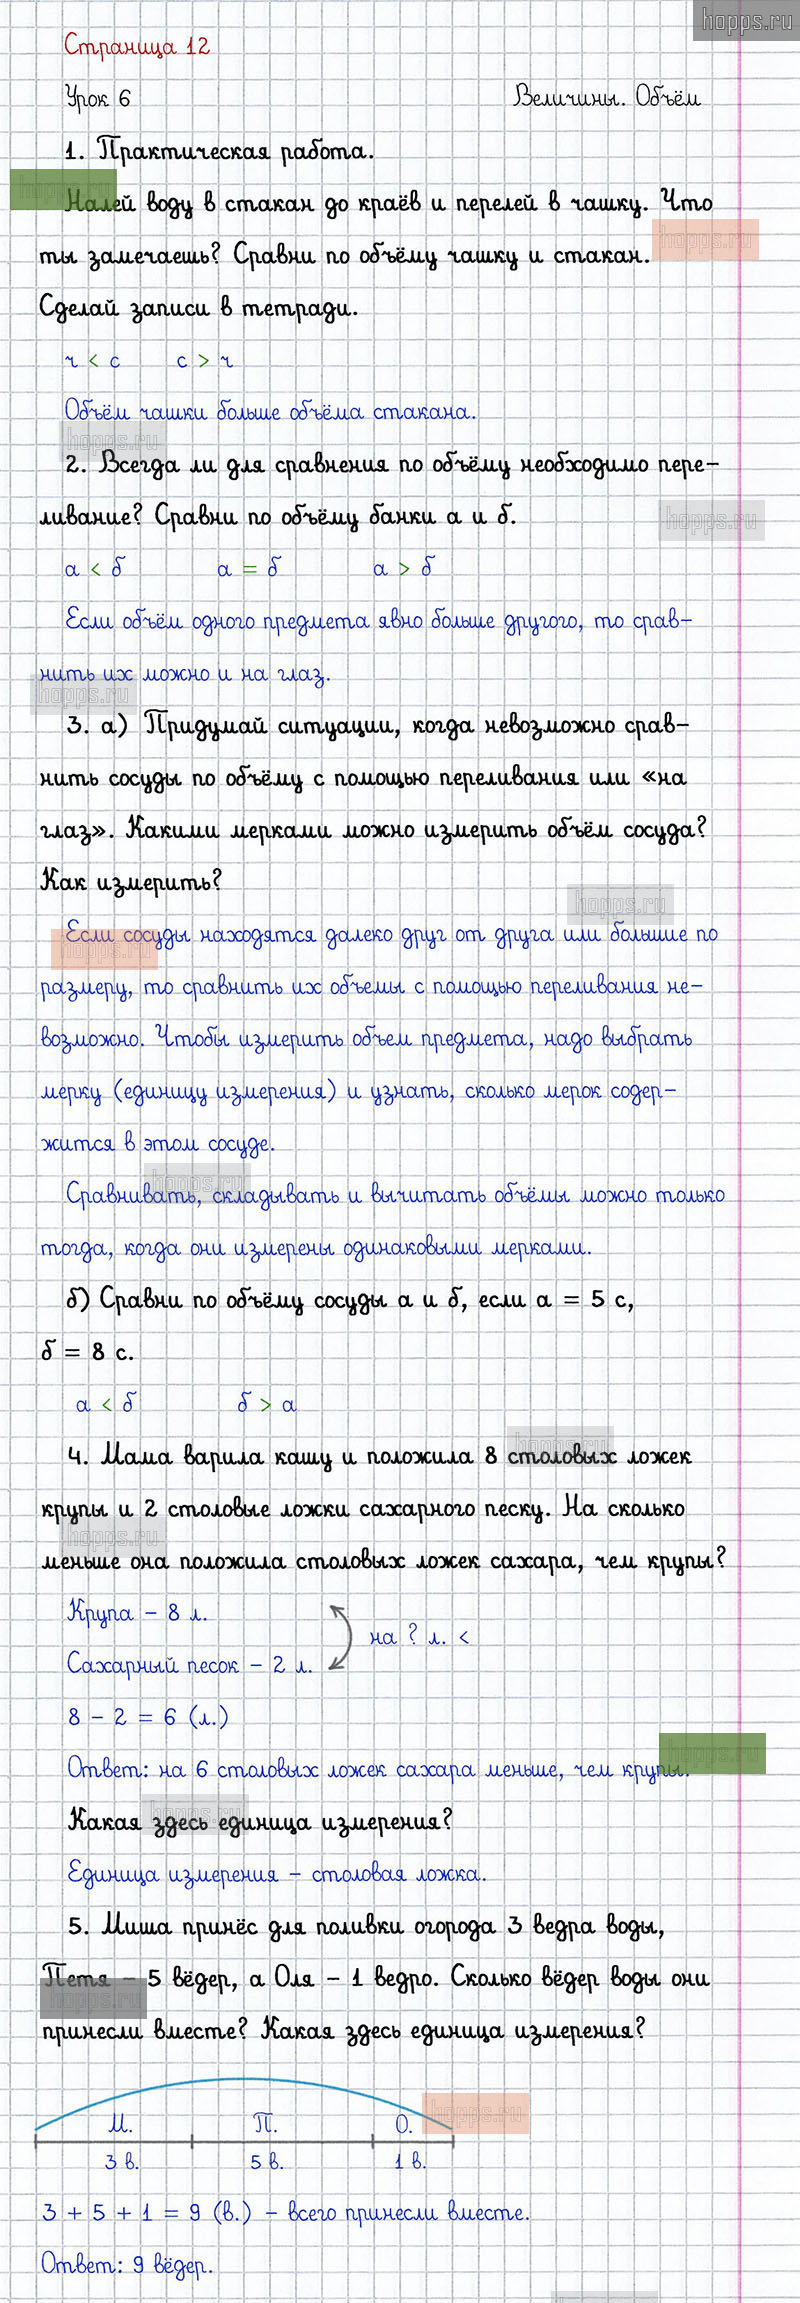 hopps.ru
Страница 12
Урок 6 Величины. Объём
1. Практическая работа.
hopps.ru
Налей воду в стакан до краёв и перелей в чашку. Что
hopps.ru
ты замечаешь? Сравни по объёму чашку и стакан.
Сделай записи в тетради.
ч < с с > ч
Объём чашки больше объёма стакана.
hopps.ru
2. Всегда ли для сравнения по объёму необходимо пере-
ливание? Сравни по объёму банки а и б.
hopps.ru
а < б а = б а > б
Если объём одного предмета явно больше другого, то срав-
нить их можно и на глаз.
hopps.ru
3. а) Придумай ситуации, когда невозможно срав-
нить сосуды по объёму с помощью переливания или «на
глаз». Какими мерками можно измерить объём сосуда?
Как измерить?
hopps.ru
Если сосуды находятся далеко друг от друга или большие по
hopps.ru
размеру, то сравнить их объемы с помощью переливания не-
возможно. Чтобы измерить объем предмета, надо выбрать
мерку (единицу измерения) и узнать, сколько мерок содер-
жится в этом сосуде.
hopps.ru
Сравнивать, складывать и вычитать объёмы можно только
тогда, когда они измерены одинаковыми мерками.
б) Сравни по объёму сосуды а и б, если а = 5 с,
б = 8 с.
а < б б > а
hopps.ru
4. Мама варила кашу и положила 8 столовых ложек
крупы и 2 столовые ложки сахарного песку. На сколько
hopps.ru
меньше она положила столовых ложек сахара, чем крупы?
Крупа – 8 л.
на ? л. <
Сахарный песок – 2 л.
8 – 2 = 6 (л.)
hopps.ru
Ответ: на 6 столовых ложек сахара меньше, чем крупы.
hopps.ru
Какая здесь единица измерения?
Единица измерения – столовая ложка.
5. Миша принёс для поливки огорода 3 ведра воды,
Петя – 5 вёдер, а Оля – 1 ведро. Сколько вёдер воды они
hopps.ru
принесли вместе? Какая здесь единица измерения?
hopps.ru
М. П. О.
3 в. 5 в. 1 в.
3 + 5 + 1 = 9 (в.) – всего принесли вместе.
Ответ: 9 вёдер.